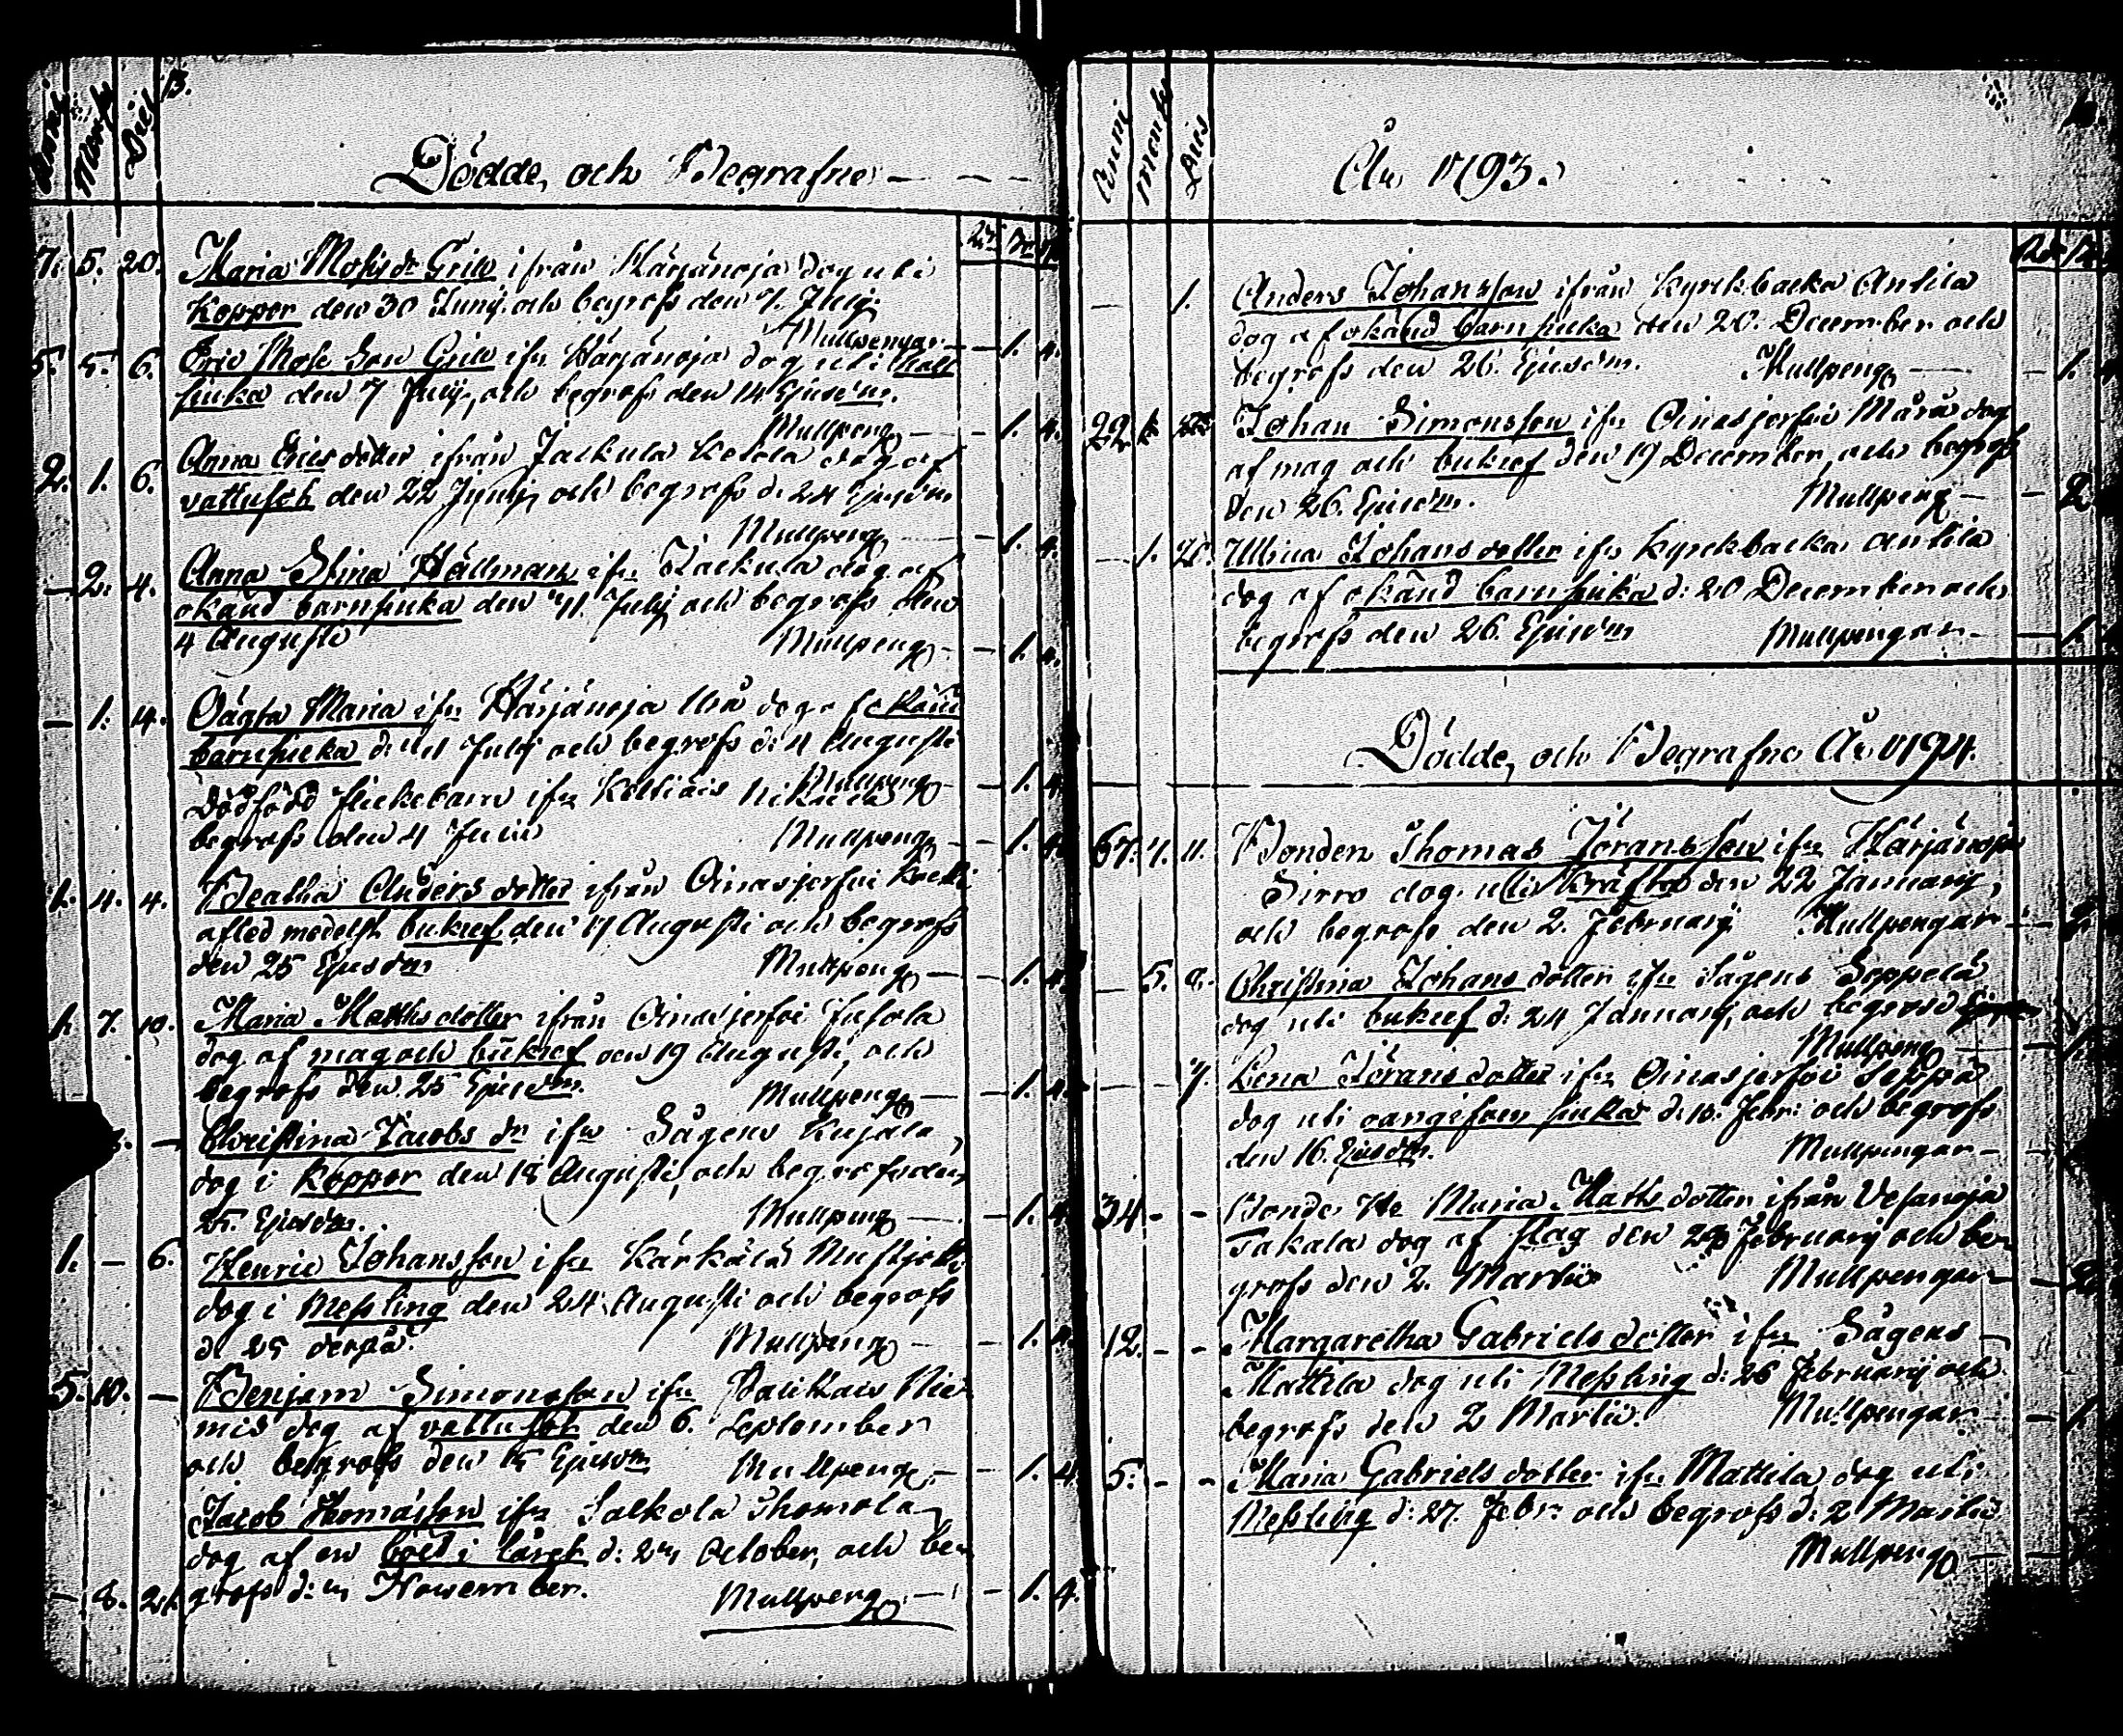 13.
Anni Mens Dies
Dödde, och Begrafne
7. 5. 20. Maria Mosis dr Grik ifrån Härjänoja dog uti
Koppor den 30 Junij och begrofs den 7. Julij
Mullpengar — 1. 4.
5. 5. 6. Eric Mose Son Grik ifrn Härjänoja dog uti hall
siuka den 7 Julij, och begrofs den 14 Ejusdm.
Mullpeng — 1. 4.
2. 1. 6. Anna Erics dotter ifrån Jackula Ketola dog af
vattusot den 22 Junij och begrofs d. 24 Ejusdm
Mullpeng — 1. 4.
— 2. 4. Anna Stina Hällman ifrn Jackula dog af
okänd barnsiuka den 11. Julij och begrofs den
4 Augusti Mullpeng — 1. 4.
— 1. 14. Oägta Maria ifrn Härjänoja dog af okänd
barnsiuka d. Julij och begrofs d. 4 Augusti
Mullpeng — 1. 4.
Dödfödd flickebarn ifrn
begrofs den 4 Junii Mullpeng — 1. 4.
1. 4. 4. Beatha Anders dotter ifrån Oinasjerfvi
afled medelst bukref den 17 Augusti och begrofs
den 25 Ejusdm Mullpeng — 1. 4.
1. 7. 10. Maria Matths dotter ifrån Oinasjerfvi
dog af mag och bukref den 19 Augusti, och
begrofs den. 25 Ejusdm. Mullpeng — 1. 4.
— Christina Jacobs dr ifrn Sågens Kujala,
dog i Koppor den 18 Augusti, och begrofs den
25. Ejusdm. Mullpeng — 1. 4.
1. — 6. Henric Johansson ifrn Kärkälä
dog i Messling den 24 Augusti och begrofs
d. 25 derpå. Mullpeng — 1. 4.
5. 10. — Benjam Simonsson ifrn Nie-
mis dog af vattusot den 6. September
och begrofs den 15 Ejusdm Mullpeng — 1. 4.
Jacob Thomasson ifrn Salkola Thomola
dog af en böld i låret d: October, och be-
— 8. 21. grofs d: Nowember. Mullpeng — 1. 4.
Anni Mens Dies
År 1793.
— 1. Anders Johansson ifrån Kyrckbacka Antila
dog af okänd barnsiuka den 20. December och
begrofs den 26. Ejusdm. Mullpeng — 1.
22. Johan Simonsson ifrn Oinasjerfvi Mårä dog
af mag och bukref den 19 December, och begrofs
den 26. Ejusdm. Mullpeng — 2
— 1. 20. Ullrica Johans dotter ifrn Kyrckbacka Antila
dog af okänd barnsiuka d: 20 December och
begrofs den 26. Ejusdm Mullpengar — 1.
Dödde, och Begrafne År 1794.
67. 7. 11. Bonden Thomas Jöransson ifrn Härjänoja
Sirro dog uti Kräfta den 22 Januarij,
och begrofs den 2. Februarij Mullpengar — 2.
— 5. 8. Christina Johans dotter ifrn Sågens Seppelä
dog uti bukref d: 24 Januarij, och begrofs d
Mullpeng — 1
— 7. Lena Jörans dotter ifrn Oinasjerfvi Seppä
dog uti siuka d. 10. Febr: och begrofs
den 16. Ejusdm. Mullpengar —
34 - - Bonde H Maria Matts dotter ifrån Vesanoja
Takala dog af slag den Februarij och be-
grofs den 2. Martii Mullpengar — 2
12. - - Margaretha Gabriels dotter ifrn Sågens
Mattila dog uti Messling d: 26 Februarij och
begrofs den 2 Martii. Mullpengar — 1
5. - - Maria Gabriels dotter ifrn Mattila dog uti
Messling d: 27. Febr: och begrofs d: 2 Martii
Mullpeng —